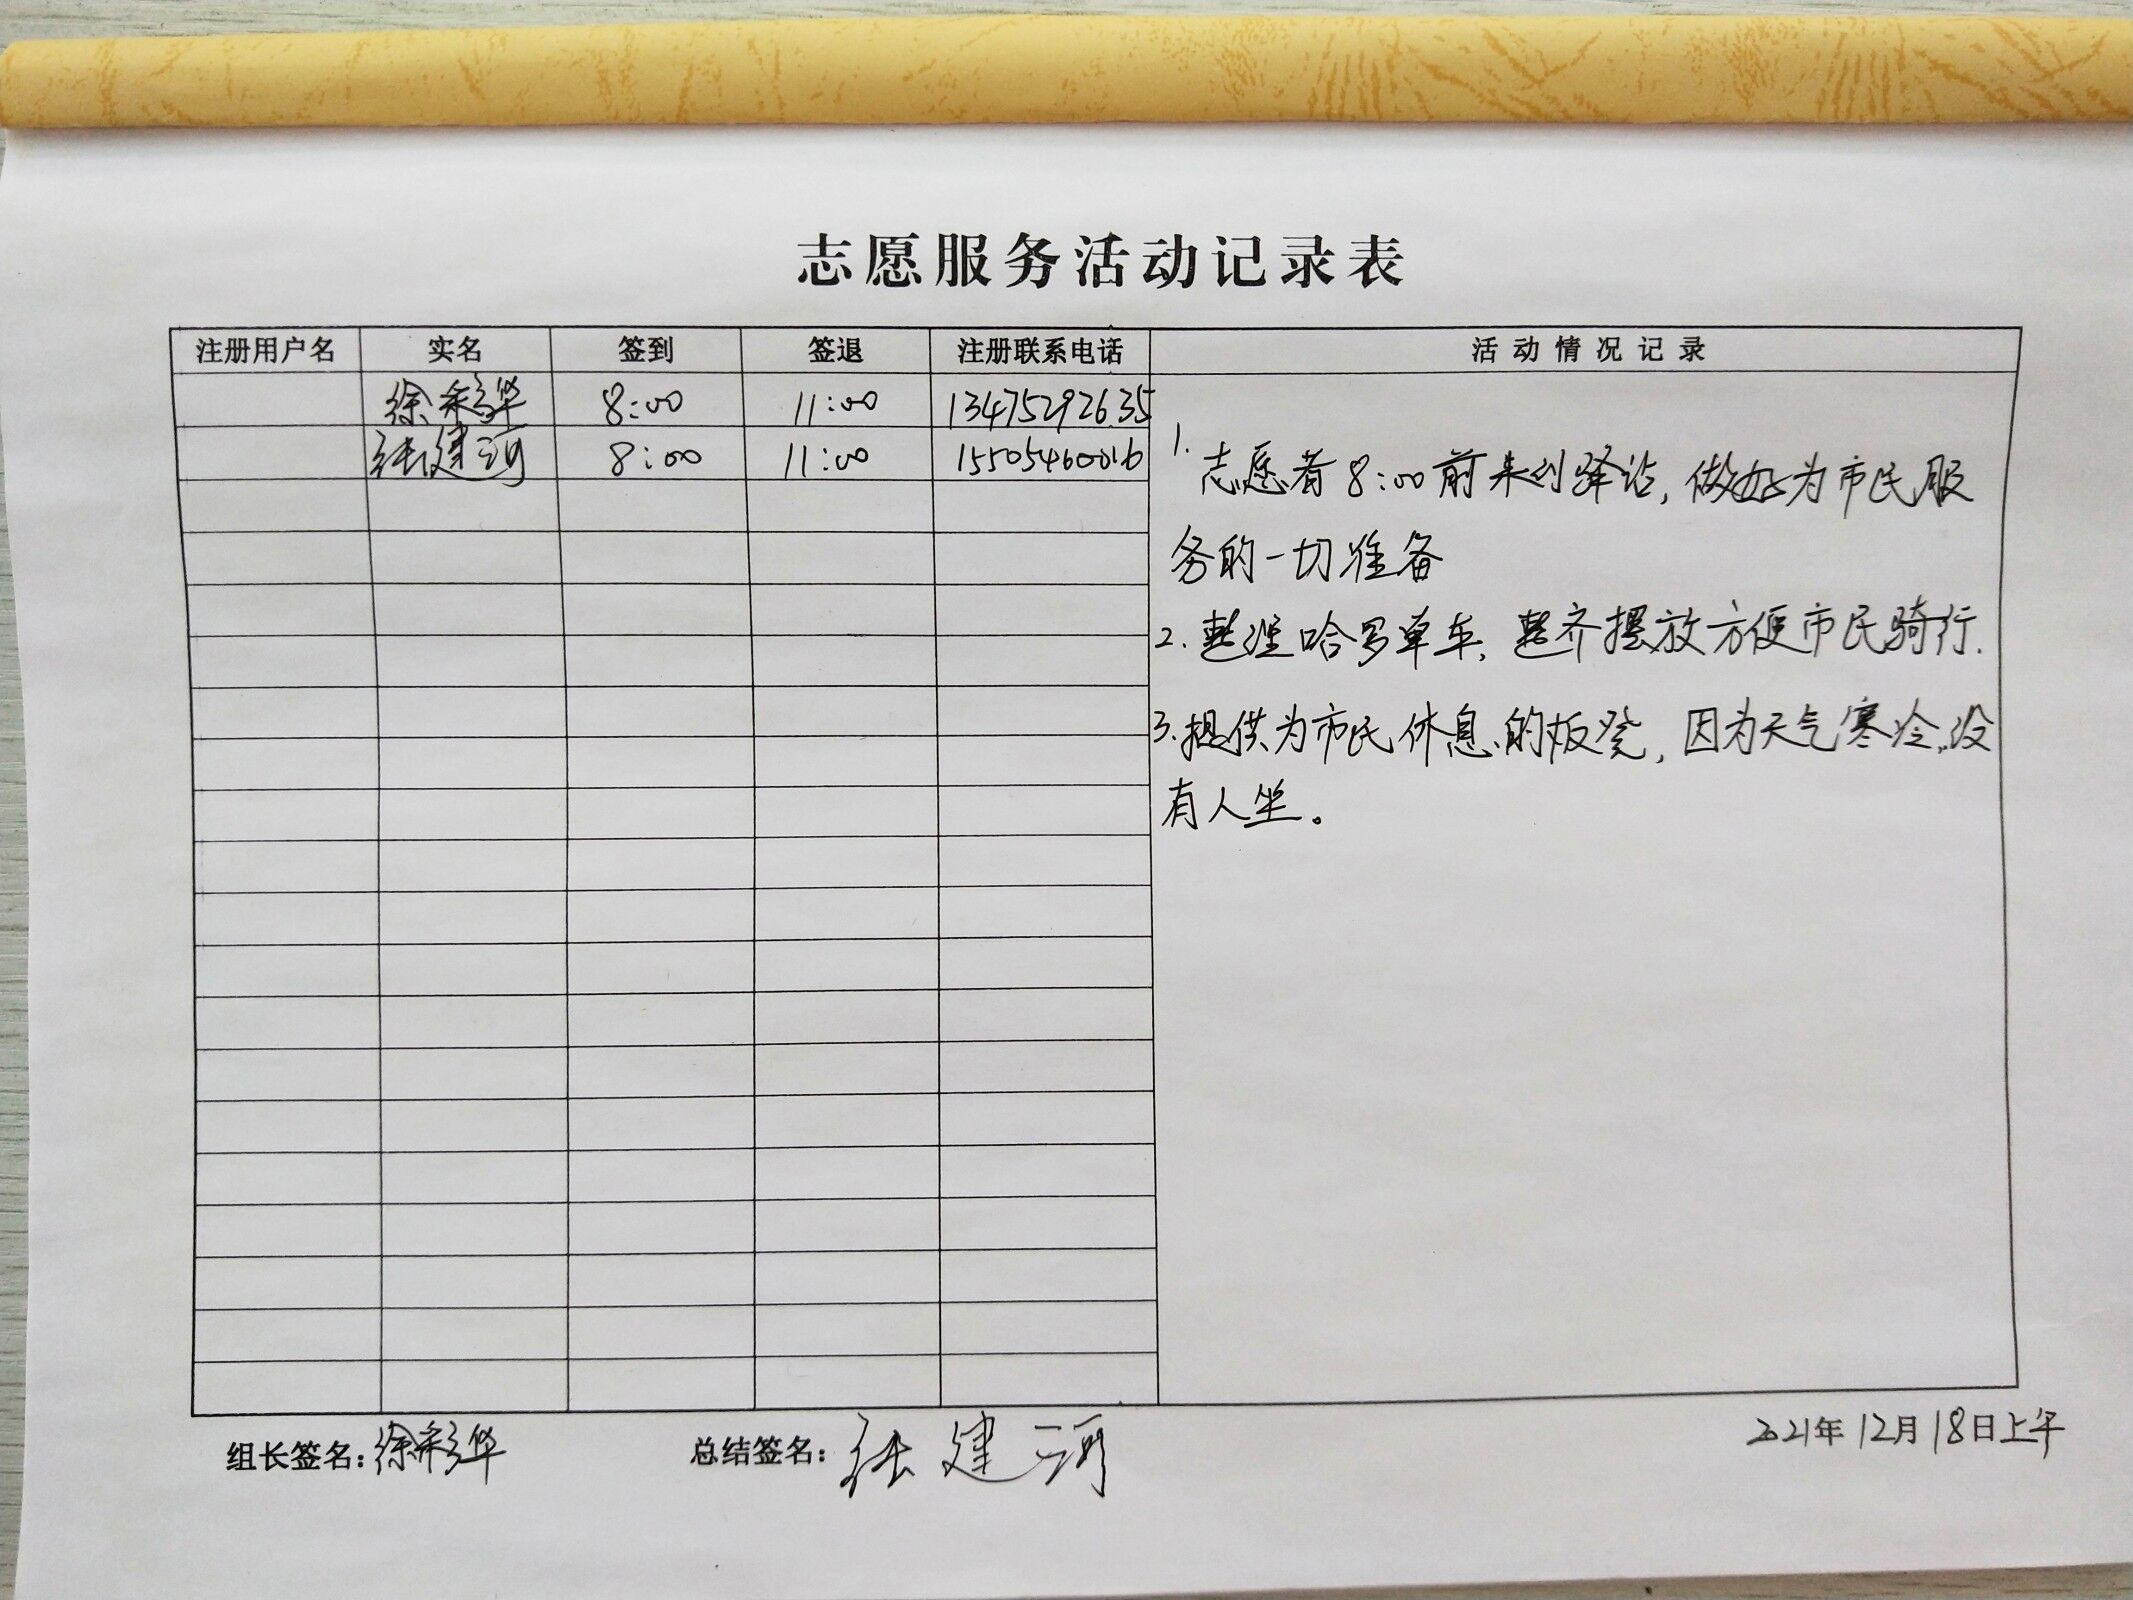 志愿服务活动记录表
注册用户名 实名 签到 签退 注册联系电话 活动情况记录
徐彩华 8:00 11:00 13475292635
张建河 8:00 11:00 15505460016
1.志愿者8:00前来到驿站,做好为市民服
务的一切准备
2.整理哈罗单车,整齐摆放方便市民骑行.
3.提供为市民休息的板凳,因为天气寒冷,没
有人坐。
组长签名:徐彩华 总结签名:张建河 2021年12月18日上午